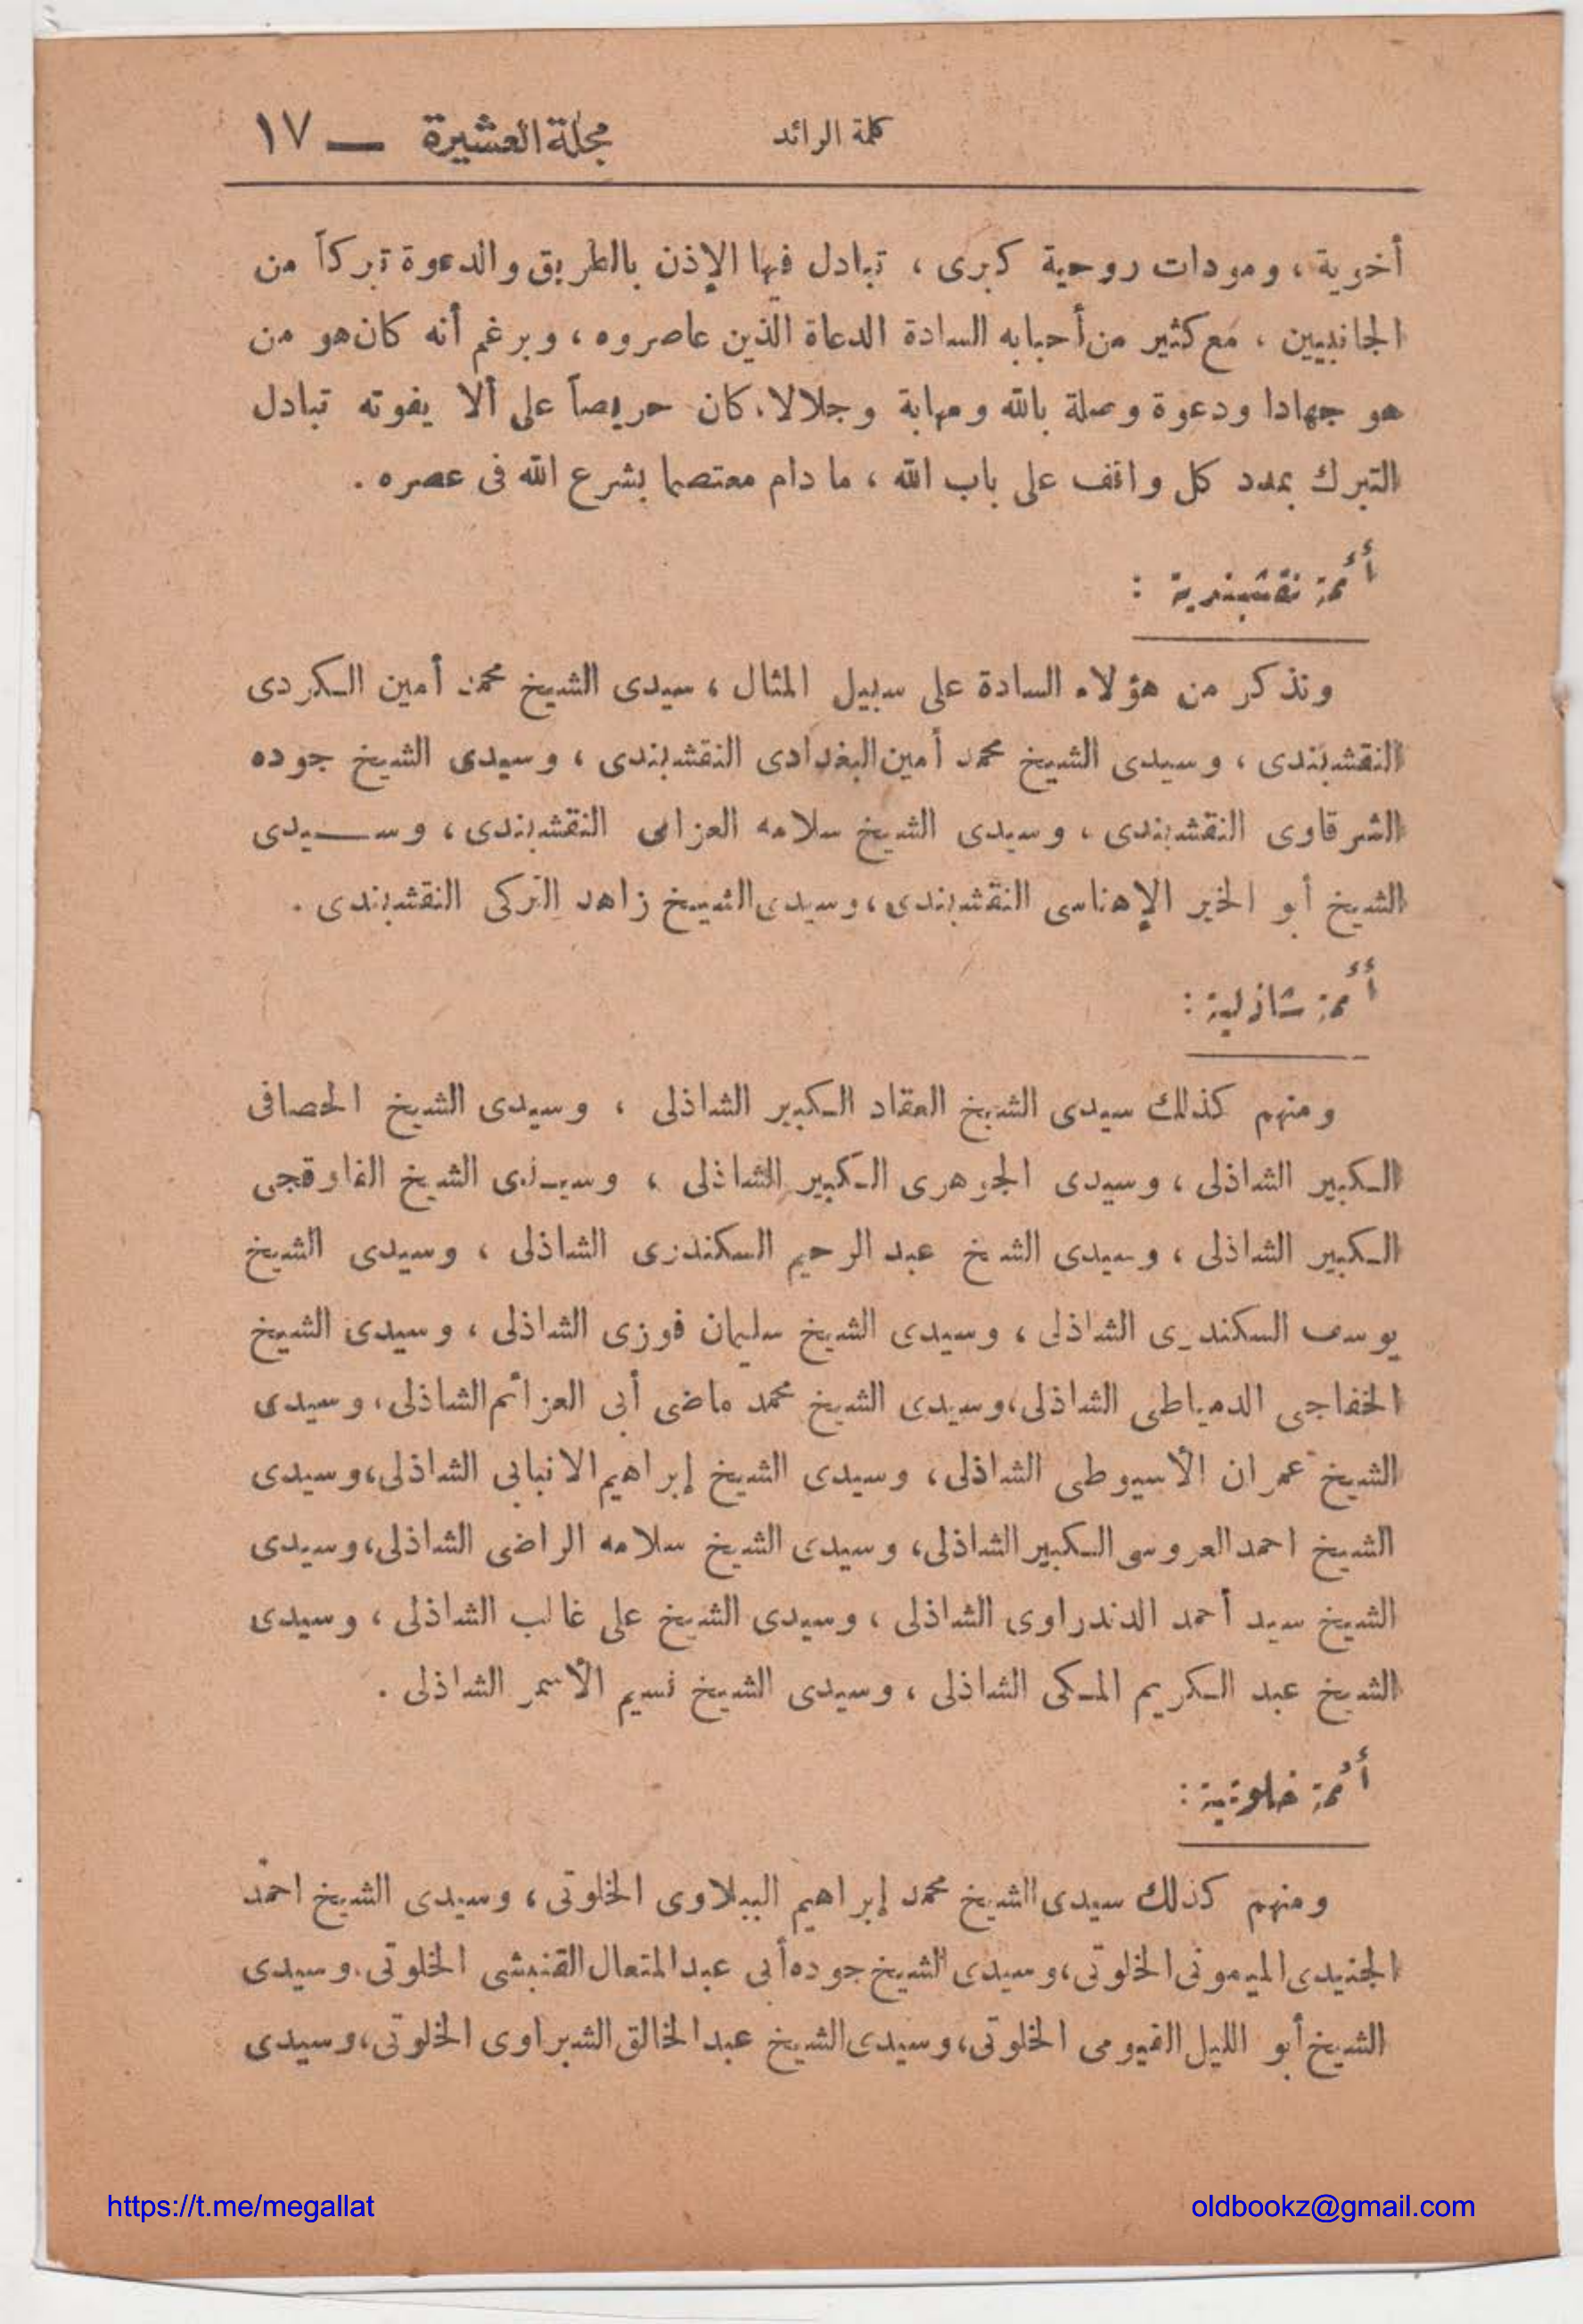 كلمة الرائد
مجلة العشيرة — ١٧
أخوية ، ومودات روحية كبرى ، تبادل فيها الإذن بالطريق والدعوة تبركاً من
الجانبيين ، مع كثير من أحبابه السادة الدعاة الذين عاصروه ، وبرغم أنه كان هو من
هو جهادا ودعوة وصلة بالله ومهابة وجلالا ، كان حريصاً على ألا يفوته تبادل
التبرك بمدد كل واقف على باب الله ، ما دام معتصما بشرع الله فى عصره .
أئمة نقشبندية :
ونذكر من هؤلاء السادة على سبيل المثال ، سيدى الشيخ محمد أمين الكردى
النقشبندى ، وسيدى الشيخ محمد أمين البغدادى النقشبندى ، وسيدى الشيخ جوده
الشرقاوى النقشبندى ، وسيدى الشيخ سلامه العزامى النقشبندى ، وسيدى
الشيخ أبو الخير الإهناسى النقشبندى ، وسيدى الشيخ زاهد التركى النقشبندى .
أئمة شاذلية :
ومنهم كذلك سيدى الشيخ العقاد الكبير الشاذلى ، وسيدى الشيخ الحصافى
الكبير الشاذلى ، وسيدى الجوهرى الكبير الشاذلى ، وسيدى الشيخ القاوقجى
الكبير الشاذلى ، وسيدى الشيخ عبد الرحيم السكندرى الشاذلى ، وسيدى الشيخ
يوسف السكندرى الشاذلى ، وسيدى الشيخ سليمان فوزى الشاذلى ، وسيدى الشيخ
الخفاجى الدمياطى الشاذلى ، وسيدى الشيخ محمد ماضى أبى العزائم الشاذلى ، وسيدى
الشيخ عمران الأسيوطى الشاذلى ، وسيدى الشيخ إبراهيم الانبابى الشاذلى ، وسيدى
الشيخ احمد العروسى الكبير الشاذلى ، وسيدى الشيخ سلامه الراضى الشاذلى ، وسيدى
الشيخ سيد أحمد الدندراوى الشاذلى ، وسيدى الشيخ على غالب الشاذلى ، وسيدى
الشيخ عبد الكريم المكى الشاذلى ، وسيدى الشيخ نسيم الأسمر الشاذلى .
أئمة خلوتية :
ومنهم كذلك سيدى الشيخ محمد إبراهيم الببلاوى الخلوتى ، وسيدى الشيخ احمد
الجنيدى الميمونى الخلوتى ، وسيدى الشيخ جوده أبى عبد المتعال القنبشى الخلوتى . وسيدى
الشيخ أبو الليل الفيومى الخلوتى ، وسيدى الشيخ عبد الخالق الشبراوى الخلوتى ، وسيدى
https://t.me/megallat
oldbookz@gmail.com